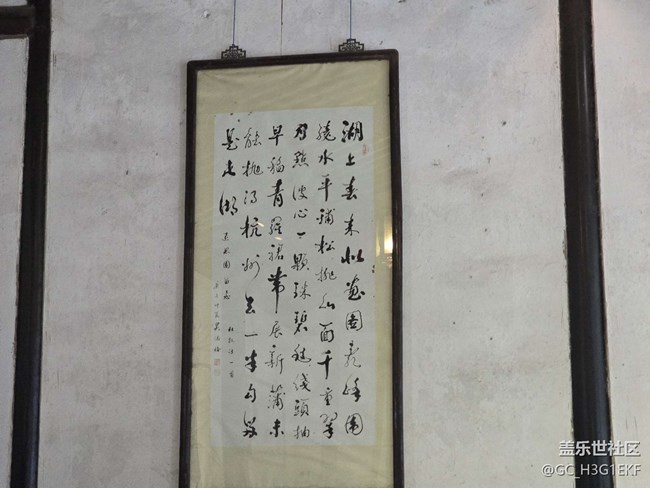 湖上春来似畫圖亂峰圍
繞水平鋪松排山面千重翠
月點波心一顆珠碧毯綫頭抽
早稻青羅裙帶展新蒲未
能抛得杭州去一半勾留
是此湖
盖乐世社区
@GC_H3G1EKF